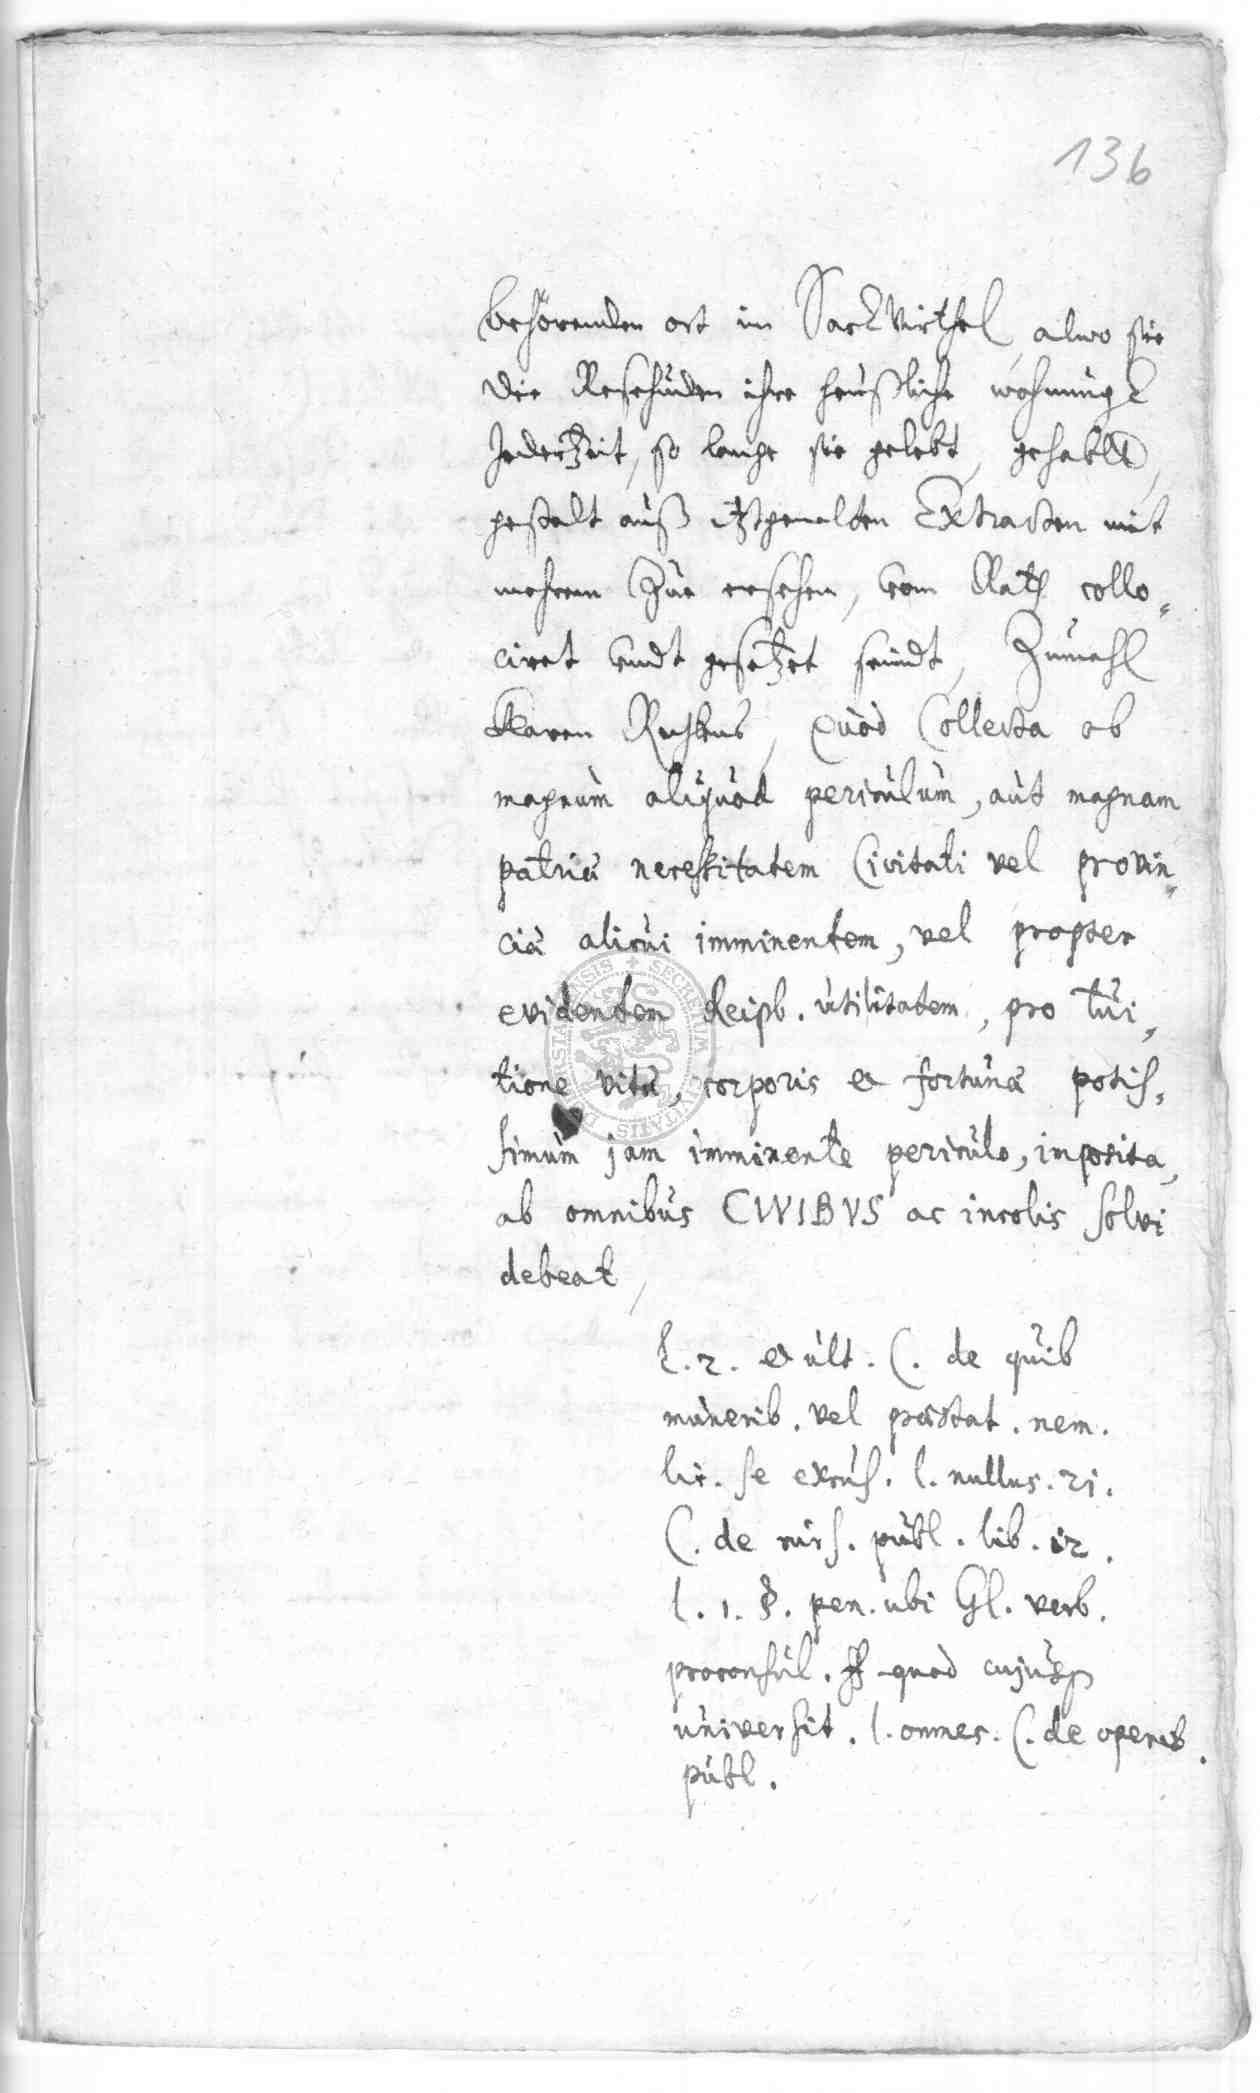 136
behörenden ort im Sack Virthel, alwo sie
die Reschüden ihre heußliche wohnung
Jederzeit, so lange sie gelebt, gehabtt,
gestalt auß itztgemelten Extracten mit
mehrem Zue ersehen, vom Rath collo=
ciret vndt gesetzet seindt, Zumahl
klaren Rechtens, Quòd Collecta ob
magnùm aliquod pericùlùm, aùt magnam
patriæ necessitatem Civitati vel provin=
ciæ alicùi imminentem, vel propter
evidentem Reipb. ùtilitatem, pro tùi=
tione vitæ, corporis et fortùnæ potis=
simùm jam imminente pericùlo, imposita,
ab omnibùs CIVIBVS ac incolis solvi
debeat,
l. 2. et ùlt. C. de qùib
mùnerib. vel præstat. nem.
lic. se excùs. l. nullus. 21.
C. de cùrs. pùbl. lib. 12.
l. 1. §. pen. ubi Gl. verb.
proconsùl. ff quod cujùsq
ùniversit. l. omnes. C. de operib.
pùbl.
SECRETUM CIVITATIS